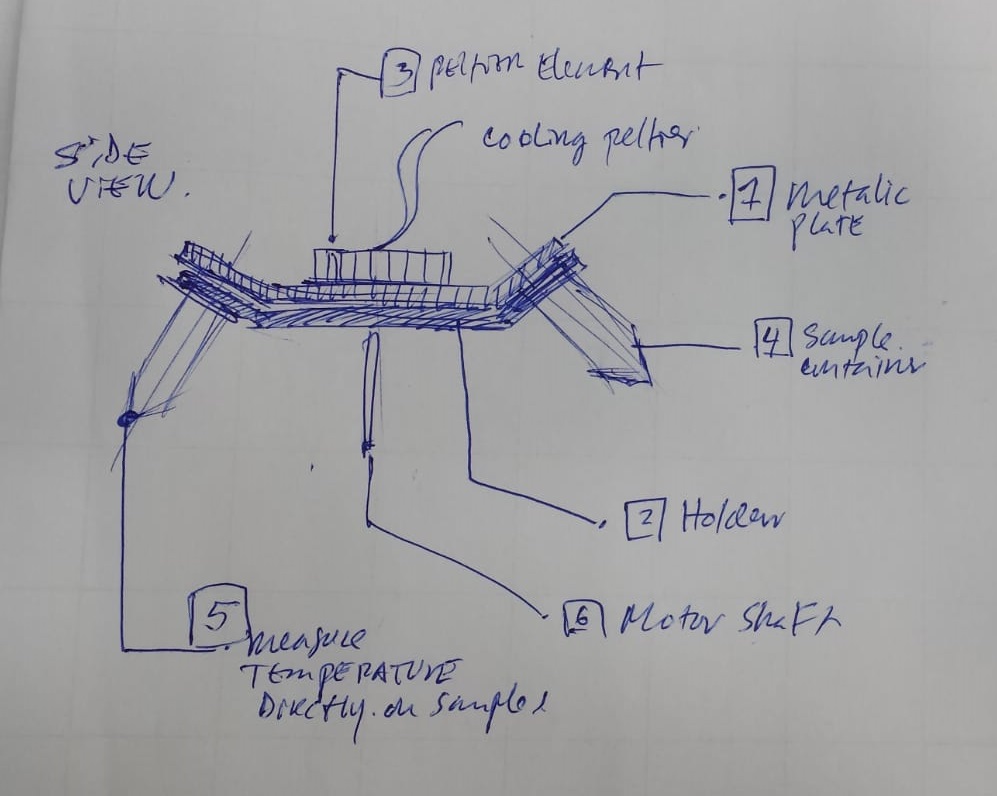 3 Peltier Element
cooling peltier
SIDE
VIEW.
1 Metalic
plate
4 Sample
container
2 Holder
6 Motor Shaft
5
Measure
TEMPERATURE
Directly on Samples